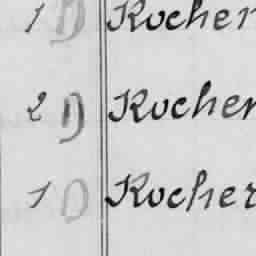 1 D Kocher
2 D Kocher
1 D Kocher